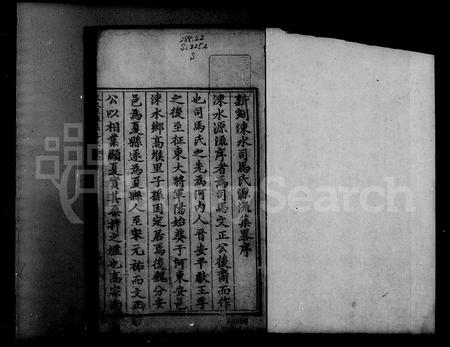 289.22
S:2252
S
新刻涑水司馬氏源流集畧序
涑水源流序者為司馬文正公後裔而作
也司馬氏之先為河內人晉安平獻王孚
之後至征東大將軍陽始葬于河東安邑
涑水鄉高堠里子孫因定居焉後魏分安
邑為夏縣遂為夏縣人至宋元祐而文正
公以相業顯夏實其桑梓之墟也高宗南
Search